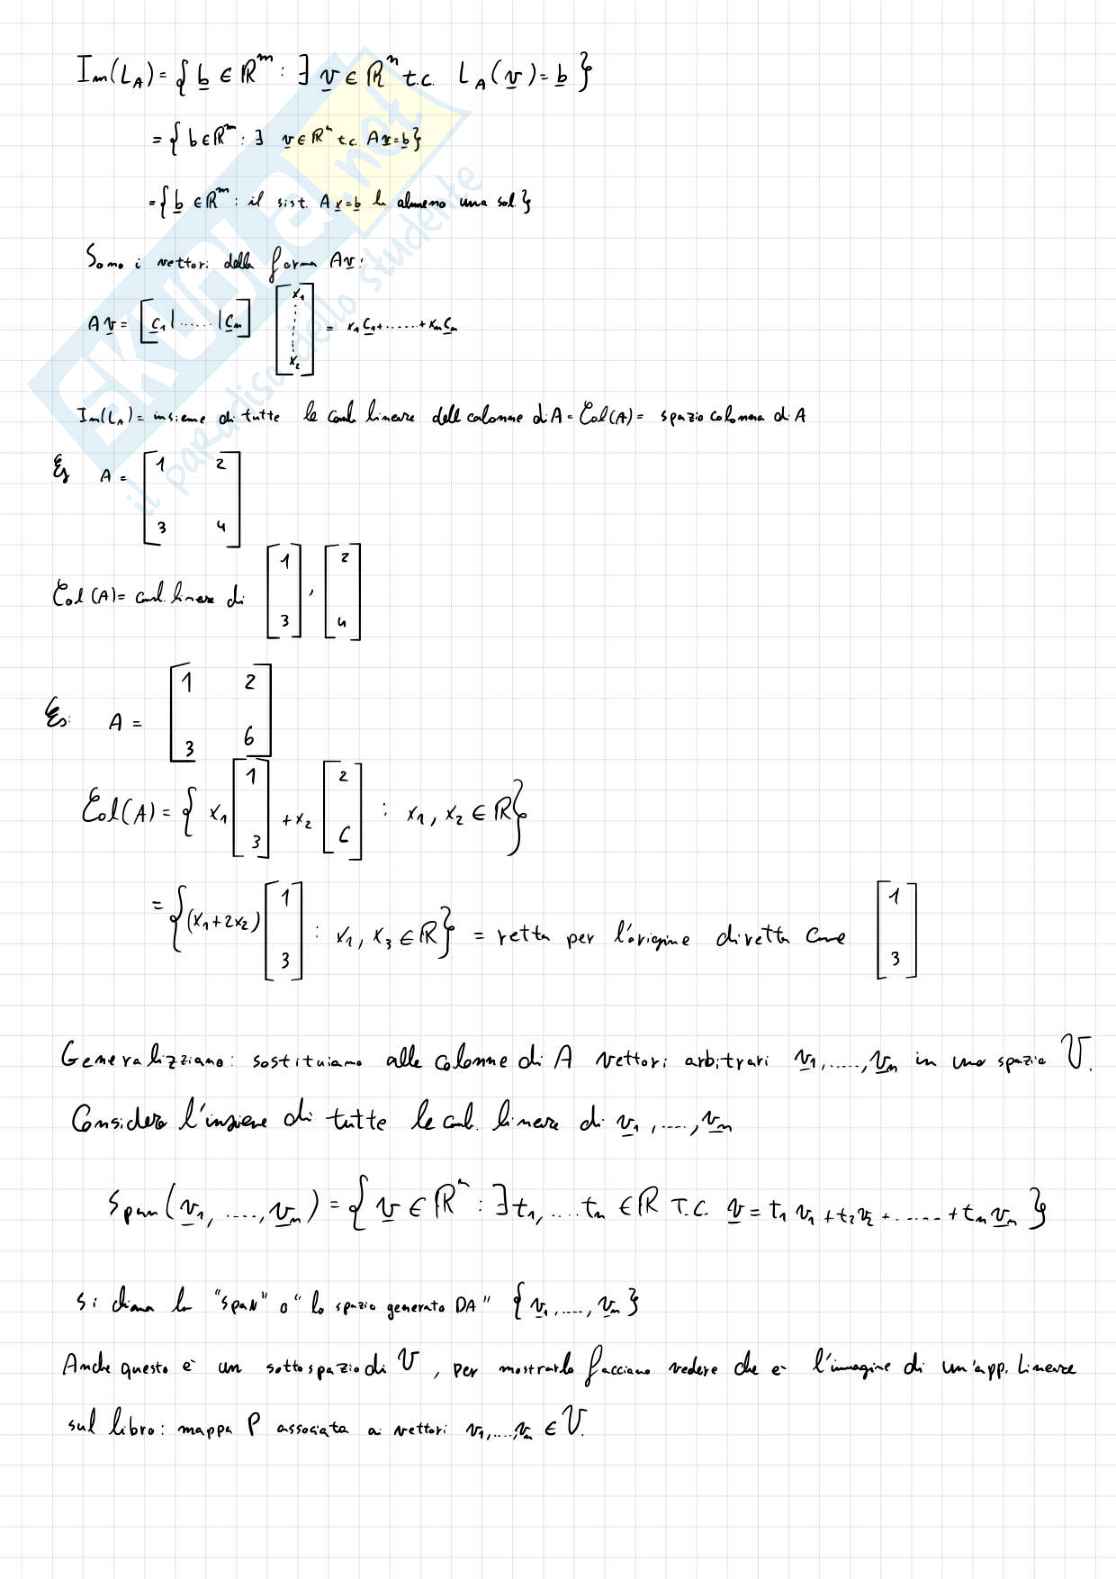 Im(L_A) = { b ∈ ℝ^m : ∃ v ∈ ℝ^n t.c. L_A(v) = b }
= { b ∈ ℝ^m : ∃ v ∈ ℝ^n t.c. Av = b }
= { b ∈ ℝ^m : il sist. Ax = b ha almeno una sol. }
Sono i vettori della forma Av:
Av = [ c_1 | ...... | c_n ] [ x_1 ⋮ x_2 ] = x_1 c_1 + ...... + x_n c_n
Im(L_A) = insieme di tutte le comb lineare dell colonne di A = Col(A) = spazio colonna di A
Es A = [ 1 2
3 4 ]
Col(A) = comb. lineare di [ 1 3 ] , [ 2 4 ]
Es: A = [ 1 2
3 6 ]
Col(A) = { x_1 [ 1 3 ] + x_2 [ 2 6 ] : x_1, x_2 ∈ ℝ }
= { (x_1 + 2x_2) [ 1 3 ] : x_1, x_3 ∈ ℝ } = retta per l'origine diretta come [ 1 3 ]
Generalizziano: sostituiamo alle colonne di A vettori arbitrari v_1, ....., v_n in uno spazio V.
Considero l'insieme di tutte le comb. lineare di v_1, ....., v_n
Span(v_1, ....., v_n) = { v ∈ ℝ^n : ∃ t_1, .... t_n ∈ ℝ T.C. v = t_1 v_1 + t_2 v_2 + ...... + t_n v_n }
Si chiama lo "SPAN" o "lo spazio generato DA" { v_1, ....., v_n }
Anche questo è un sottospazio di V, per mostrarlo facciamo vedere che è l'immagine di un'app. Lineare
sul libro: mappa P associata ai vettori v_1, ...., v_n ∈ V.
skuola.net
il paradiso dello studente